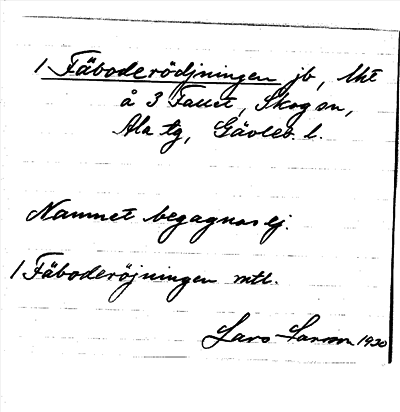 1 Fäboderödjningen jb, lht
å 3 Fallet, Skog sn,
Ala tg, Gävleb. l.
Namnet begagnas ej.
1 Fäboderöjningen mtl.
Lars Larson 1930